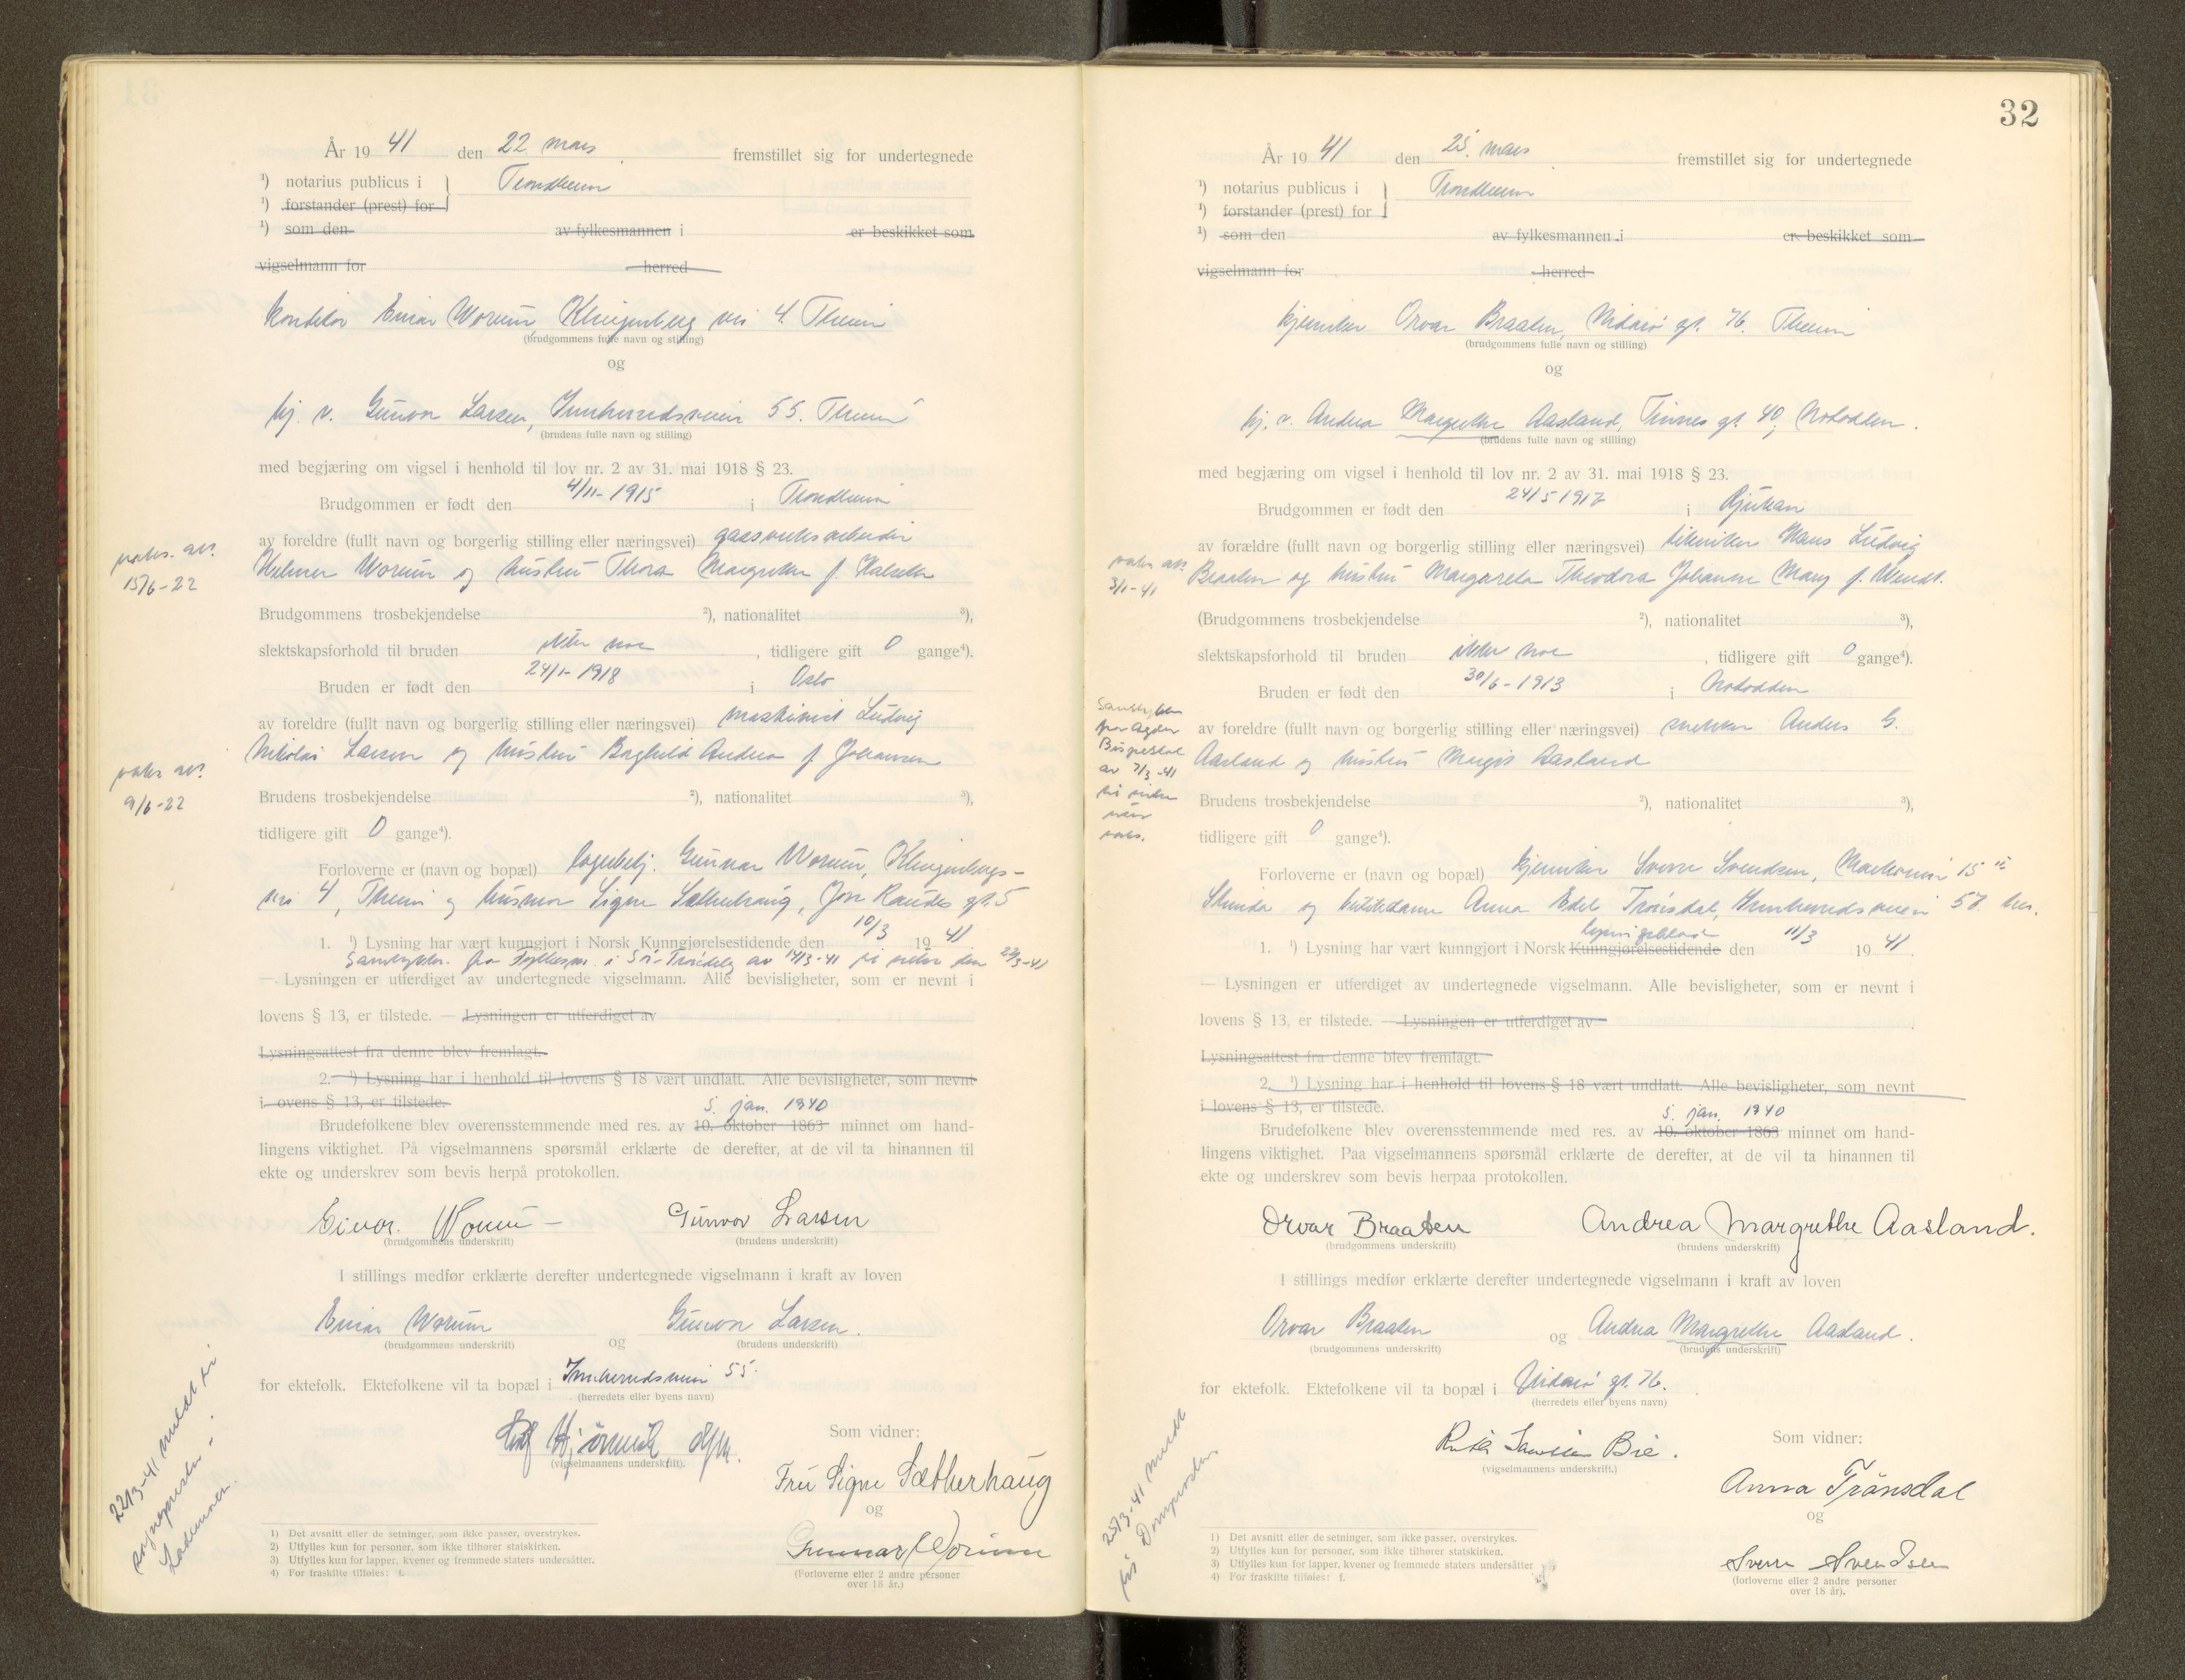 År 19 41 den 22 mars fremstillet sig for undertegnede
¹) notarius publicus i Trondheim
¹) forstander (prest) for
¹) som den av fylkesmannen i er beskikket som
vigselmann for herred
konditor Einar Worum, Klingenberg vei 4. Theim
(brudgommens fulle navn og stilling)
og
hj. v. Gunvor Larsen, Innherredsveien 55. Theim
(brudens fulle navn og stilling)
med begjæring om vigsel i henhold til lov nr. 2 av 31. mai 1918 § 23.
Brudgommen er født den 4/11-1915 i Trondheim
av foreldre (fullt navn og borgerlig stilling eller næringsvei) gassverksarbeider
Helmer Worum og hustru Thora Margrethe f.
vaks. att. 15/6-22
Brudgommens trosbekjendelse ²), nationalitet ³),
slektskapsforhold til bruden ikke noe, tidligere gift 0 gange⁴).
Bruden er født den 24/1-1918 i Oslo
av foreldre (fullt navn og borgerlig stilling eller næringsvei) maskinist Ludvig
Nikolai Larsen og hustru Borghild Andrea f. Johansen
vaks. att. 9/6-22
Brudens trosbekjendelse ²), nationalitet ³),
tidligere gift 0 gange⁴).
Forloverne er (navn og bopæl) Gunnar Worum, Klingenbergs-
vei 4, Theim og husmor Signe Sætherhaug, gt. 5
1. ¹) Lysning har vært kunngjort i Norsk Kunngjørelsestidende den 10/3 19 41
fra Fylkesm. i Sør-Trøndelag av
— Lysningen er utferdiget av undertegnede vigselmann. Alle bevisligheter, som er nevnt i
lovens § 13, er tilstede. — Lysningen er utferdiget av
Lysningsattest fra denne blev fremlagt.
2. ¹) Lysning har i henhold til lovens § 18 vært undlatt. Alle bevisligheter, som nevnt
i ovens § 13, er tilstede.
5. jan. 1940
Brudefolkene blev overensstemmende med res. av 10. oktober 1863 minnet om hand-
lingens viktighet. På vigselmannens spørsmål erklærte de derefter, at de vil ta hinannen til
ekte og underskrev som bevis herpå protokollen.
Einar Worum Gunvor Larsen
(brudgommens underskrift) (brudens underskrift)
I stillings medfør erklærte derefter undertegnede vigselmann i kraft av loven
Einar Worum og Gunvor Larsen.
(brudgommens underskrift) (brudens underskrift)
for ektefolk. Ektefolkene vil ta bopæl i Innherredsveien 55.
(herredets eller byens navn)
(vigselmannens underskrift).
Som vidner:
Fru Signe Sætherhaug
og
Gunnar Worum
(Forloverne eller 2 andre personer
over 18 år.)
22/3-41 meldt til
sognepresten i
Lademoen.
1) Det avsnitt eller de setninger, som ikke passer, overstrykes.
2) Utfylles kun for personer, som ikke tilhører statskirken.
3) Utfylles kun for lapper, kvener og fremmede staters undersåtter.
4) For fraskilte tilføies: f.
32
År 19 41 den 25. mars fremstillet sig for undertegnede
¹) notarius publicus i Trondheim
¹) forstander (prest) for
¹) som den av fylkesmannen i er beskikket som
vigselmann for herred
kjemiker Orvar Braaten, Nidarø gt. 76. Theim
(brudgommens fulle navn og stilling)
og
hj. v. Andrea Margrethe Aasland, Tinnes gt. 40, Notodden.
(brudens fulle navn og stilling)
med begjæring om vigsel i henhold til lov nr. 2 av 31. mai 1918 § 23.
Brudgommen er født den 24/5 1917 i Rjukan
av forældre (fullt navn og borgerlig stilling eller næringsvei) tekniker Hans Ludvig
Braaten og hustru Margareta Theodora Johanne Mary f. Wendt.
vaks. att. 3/1-41
(Brudgommens trosbekjendelse ²), nationalitet ³),
slektskapsforhold til bruden ikke noe, tidligere gift 0 gange⁴).
Bruden er født den 30/6-1913 i Notodden
av foreldre (fullt navn og borgerlig stilling eller næringsvei) snekker Anders G.
Aasland og hustru Margit Aasland
fra Agder
Bispestol
av 7/3-41
vaks.
Brudens trosbekjendelse ²), nationalitet ³),
tidligere gift 0 gange⁴).
Forloverne er (navn og bopæl) kjemiker Sverre Svendsen,
Strinda og Anna Edel Trønsdal, Innherredsveien 57 her.
Lysningsblad
1. ¹) Lysning har vært kunngjort i Norsk Kunngjørelsestidende den 11/3 19 41.
— Lysningen er utferdiget av undertegnede vigselmann. Alle bevisligheter, som er nevnt i
lovens § 13, er tilstede. — Lysningen er utferdiget av
Lysningsattest fra denne blev fremlagt.
2. ¹) Lysning har i henhold til lovens § 18 vært undlatt. Alle bevisligheter, som nevnt
i lovens § 13, er tilstede.
5. jan. 1940
Brudefolkene blev overensstemmende med res. av 10. oktober 1863 minnet om hand-
lingens viktighet. Paa vigselmannens spørsmål erklærte de derefter, at de vil ta hinannen til
ekte og underskrev som bevis herpaa protokollen.
Orvar Braaten Andrea Margrethe Aasland.
(brudgommens underskrift) (brudens underskrift)
I stillings medfør erklærte derefter undertegnede vigselmann i kraft av loven
Orvar Braaten og Andrea Margrethe Aasland.
(brudgommens underskrift) (brudens underskrift)
for ektefolk. Ektefolkene vil ta bopæl i Nidarø gt. 76.
(herredets eller byens navn)
(vigselmannens underskrift.)
Som vidner:
Anna Trønsdal
og
Sverre Svendsen
(forloverne eller 2 andre personer
over 18 år).
25/3-41 meldt
til Domprosten
1) Det avsnitt eller de setninger, som ikke passer, overstrykes.
2) Utfylles kun for personer, som ikke tilhører statskirken.
3) Utfylles kun for lapper, kvener og fremmede staters undersåtter
4) For fraskilte tilføies: f.